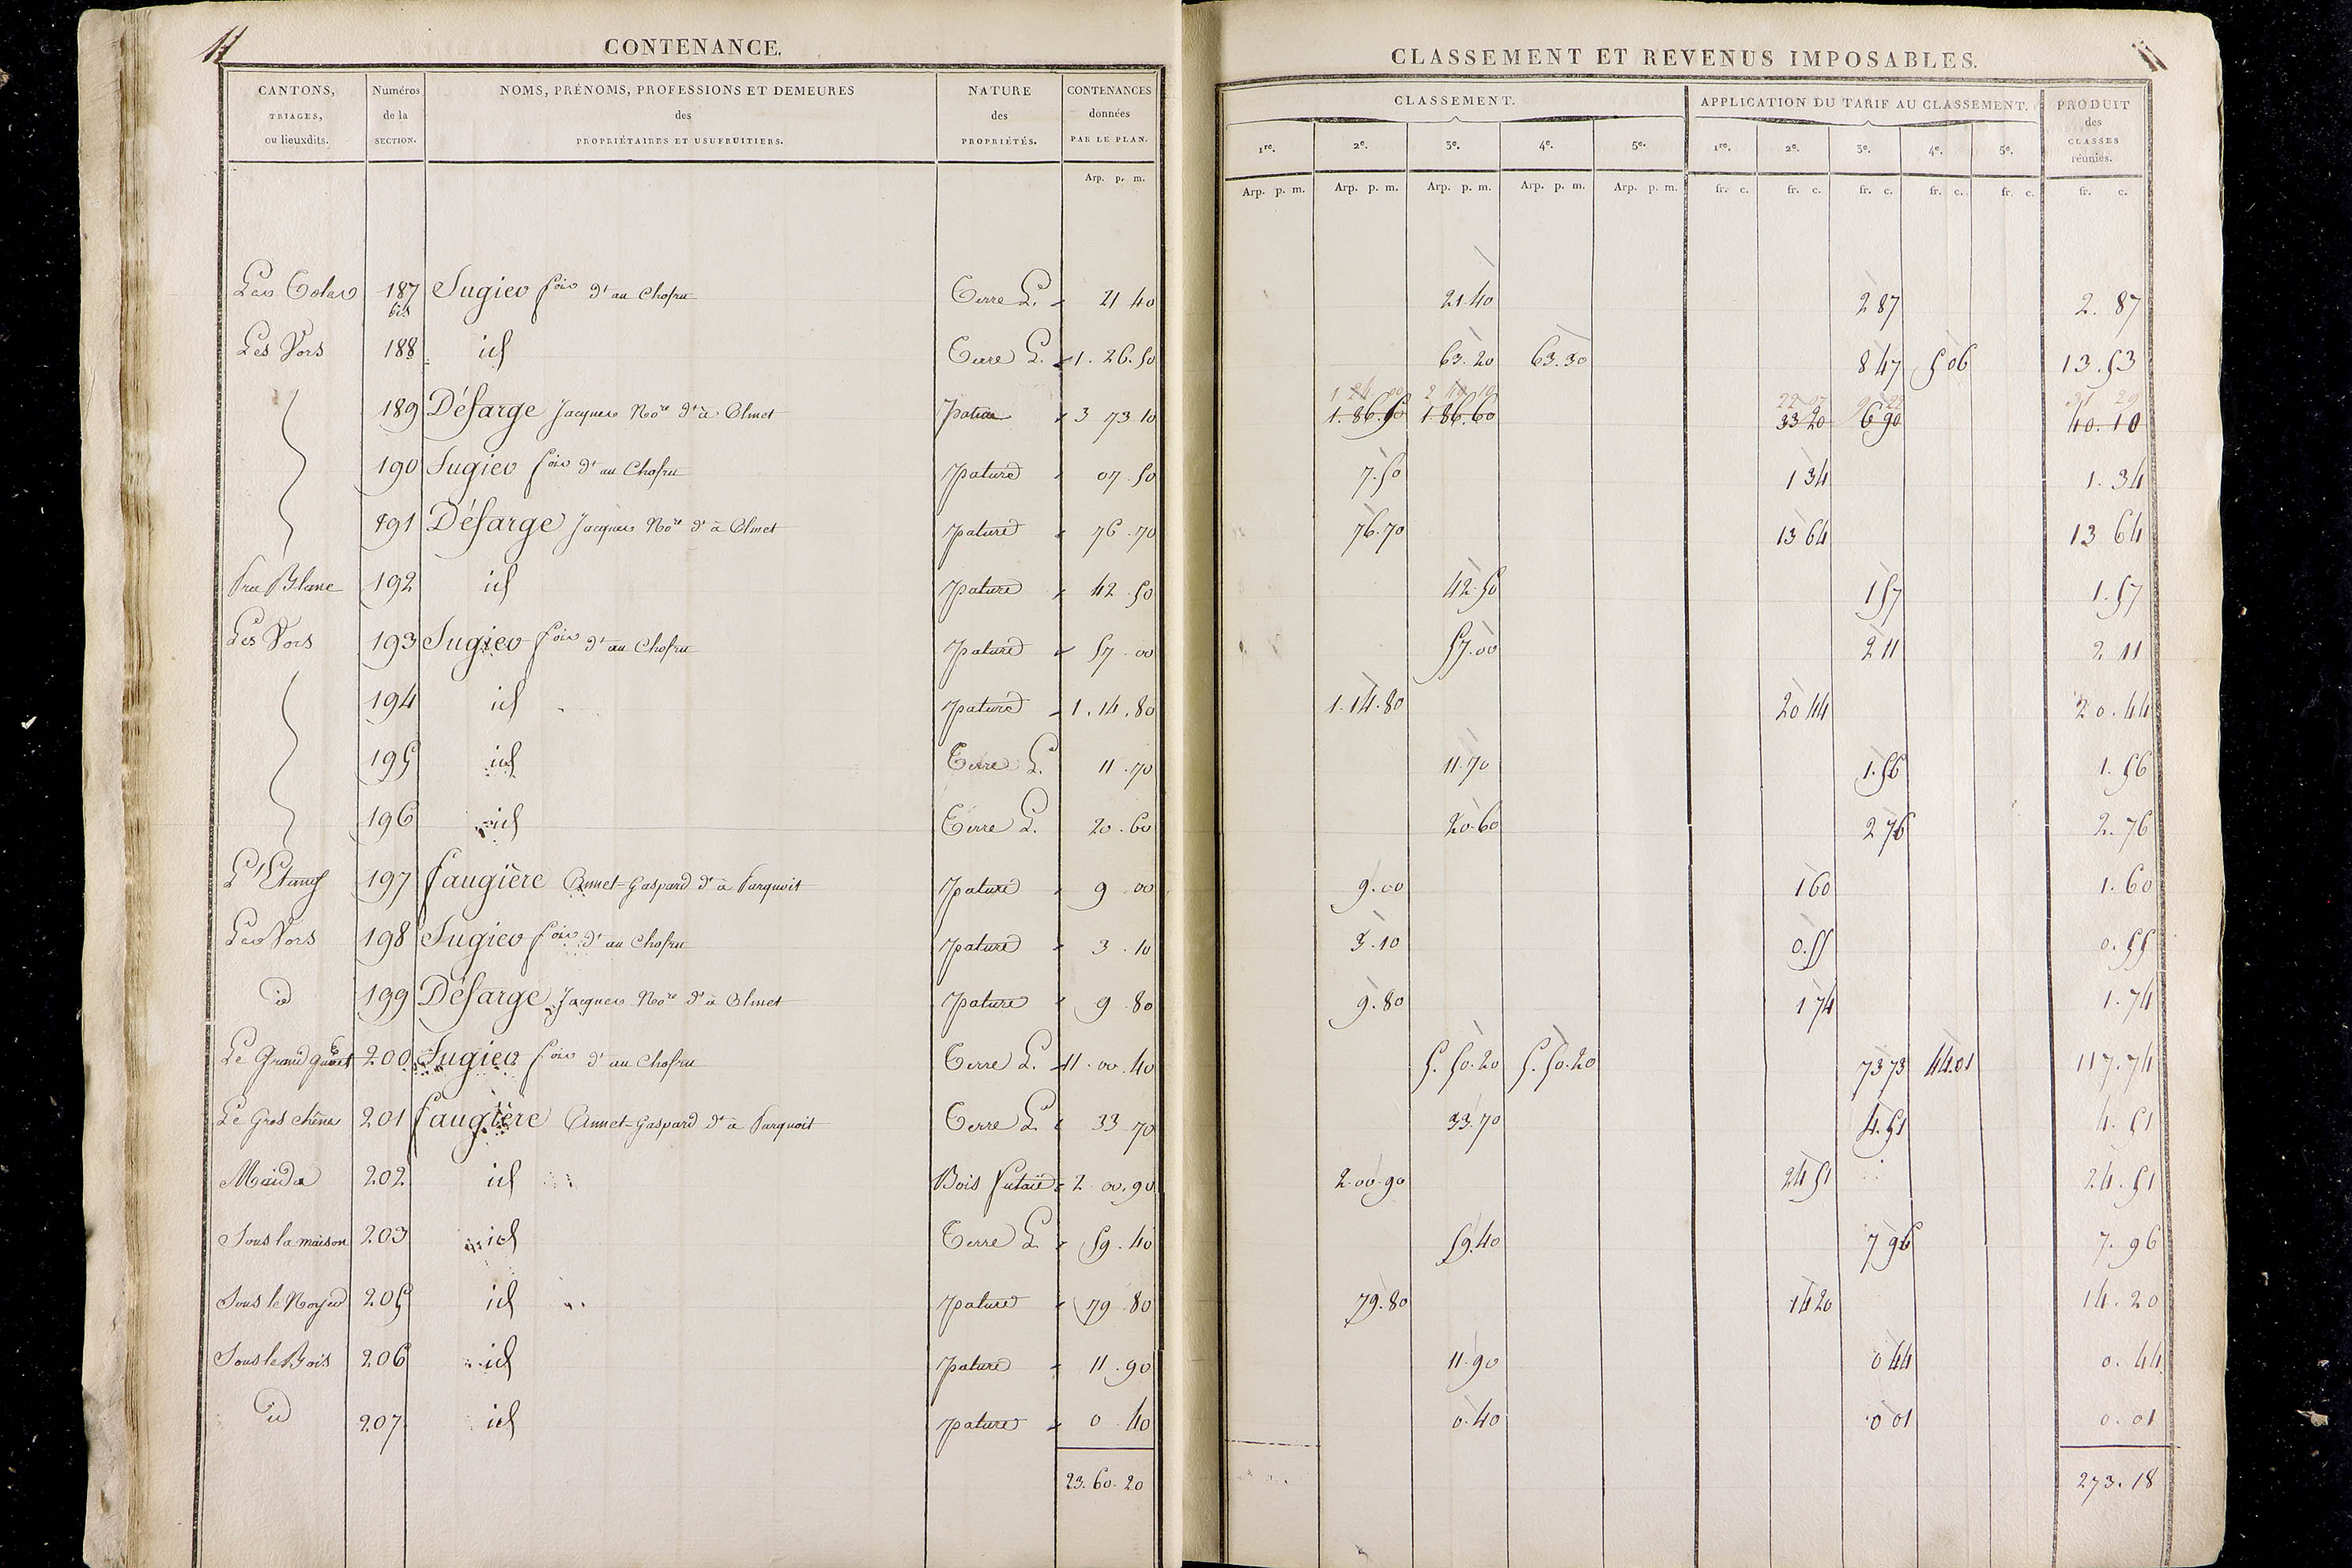 11
CONTENANCE.
CANTONS, TRIAGES, ou lieuxdits. | Numéros de la SECTION. | NOMS, PRÉNOMS, PROFESSIONS ET DEMEURES des PROPRIÉTAIRES ET USUFRUITIERS. | NATURE des PROPRIÉTÉS. | CONTENANCES données PAR LE PLAN.
Arp. p. m.
187 bis Sugier fois dt au Chofru Terre L. 21 40
Les Vors 188 id Terre L. 1. 26. 50
189 Défarge Jacques Nore dt à Olmet pature 3 73 10
190 Sugier fois dt au Chofru pature 07 50
191 Défarge Jacques Nore dt à Olmet pature 76 70
Pra Blanc 192 id pature 42 50
Les Vors 193 Sugier fois dt au Chofru pature 57 00
194 id pature 1. 14. 80
195 id Terre L. 11 70
196 id Terre L. 20 60
L'Etang 197 faugière Annet-Gaspard dt à pature 9 00
Les Vors 198 Sugier fois dt au Chofru pature 3 10
id 199 Défarge Jacques Nore dt à Olmet pature 9 80
Le Grand 200 Sugier fois dt au Chofru Terre L. 11. 00. 40
Le Gros chêne 201 faugière Annet-Gaspard dt à Terre L. 33 70
202 id Bois futaie 2 00. 90
Sous la maison 203 id Terre L. 59. 40
Sous le Noyer 205 id pature 79 80
Sous le Bois 206 id pature 11. 90
id 207 id pature 0 40
23. 60. 20
11
CLASSEMENT ET REVENUS IMPOSABLES.
CLASSEMENT. | APPLICATION DU TARIF AU CLASSEMENT. | PRODUIT des CLASSES réunies.
1re. 2e. 3e. 4e. 5e. 1re. 2e. 3e. 4e. 5e.
Arp. p. m. Arp. p. m. Arp. p. m. Arp. p. m. Arp. p. m. fr. c. fr. c. fr. c. fr. c. fr. c. fr. c.
21.40 2 87 2. 87
63. 20 63. 30 8 47 5 06 13. 53
1. 86.50 1 86.60 33 20 6 90 40. 10
7.50 1 34 1. 34
76.70 13 64 13 64
42.50 1 57 1. 57
57.00 2 11 2 11
1.14.80 20 44 20. 44
11.70 1.56 1. 56
20.60 2 76 2. 76
9.00 1 60 1. 60
3.10 0.55 0. 55
9.80 1 74 1. 74
5. 50. 20 5. 50. 20 73 73 44.01 117. 74
33.70 4.51 4. 51
2.00.90 24 51 24. 51
59.40 7 96 7. 96
79.80 14 20 14. 20
11.90 0 44 0. 44
0.40 0 01 0. 01
273. 18